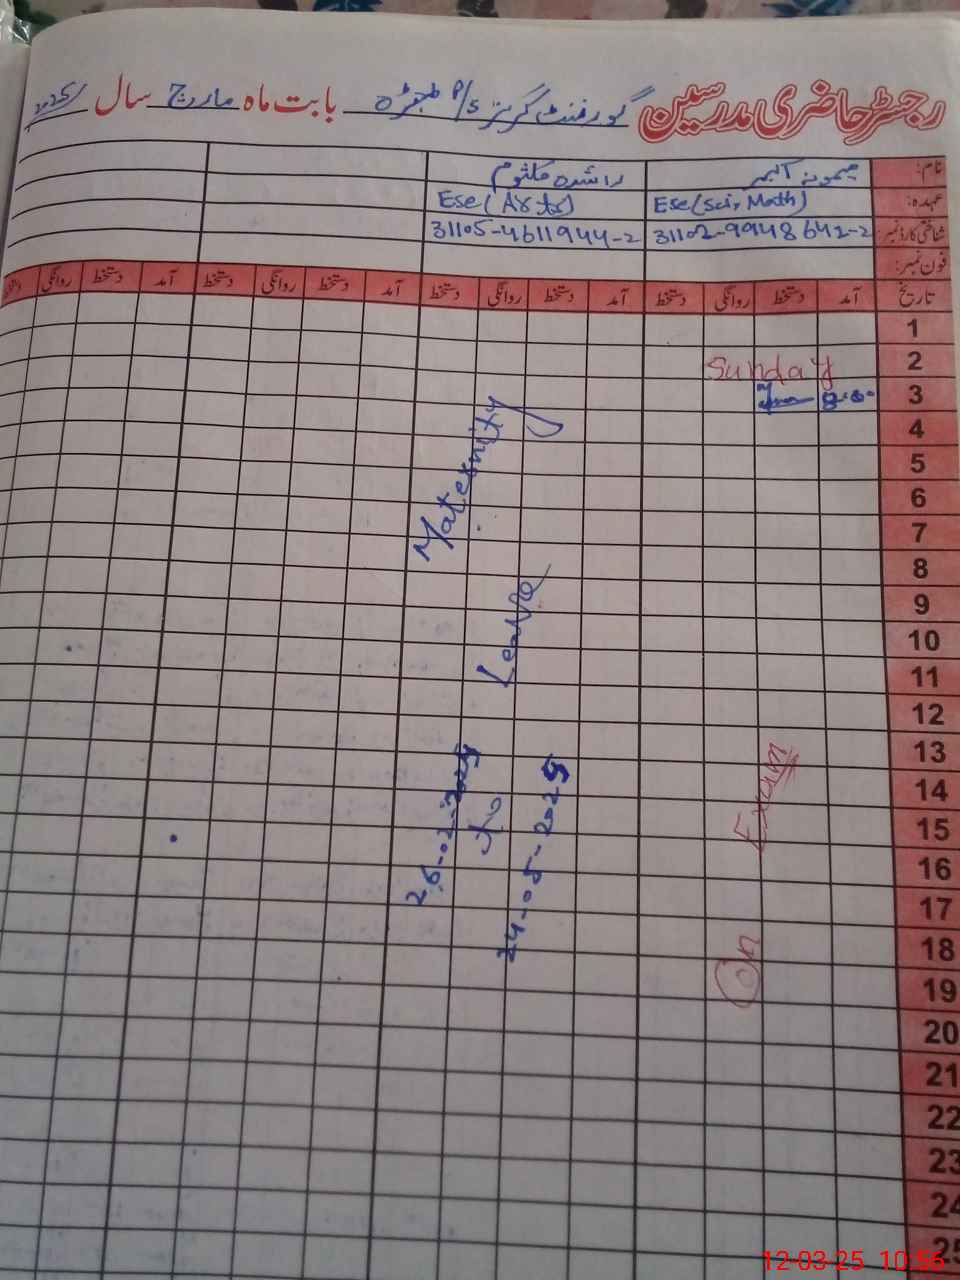 رجسٹر حاضری مدرسین گورنمنٹ گرلز P/S بابت ماہ مارچ سال 2025
نام: میمونہ راشدہ کلثوم
عہدہ: Ese (Sci, Math) Ese (Arts)
شناختی کارڈ نمبر: 31102-9948642-2 31105-4611944-2
فون نمبر:
تاریخ آمد دستخط روانگی دستخط آمد دستخط روانگی دستخط آمد دستخط روانگی دستخط آمد دستخط روانگی دستخط
1
2 Sunday
3
4
5
6
7
8
9
10
11
12
13
14
15
16
17
18
19
20
21
22
23
24
25
On Exam
Maternity
Leave
26-02-2025
to
24-05-2025
12-03-25 10:56